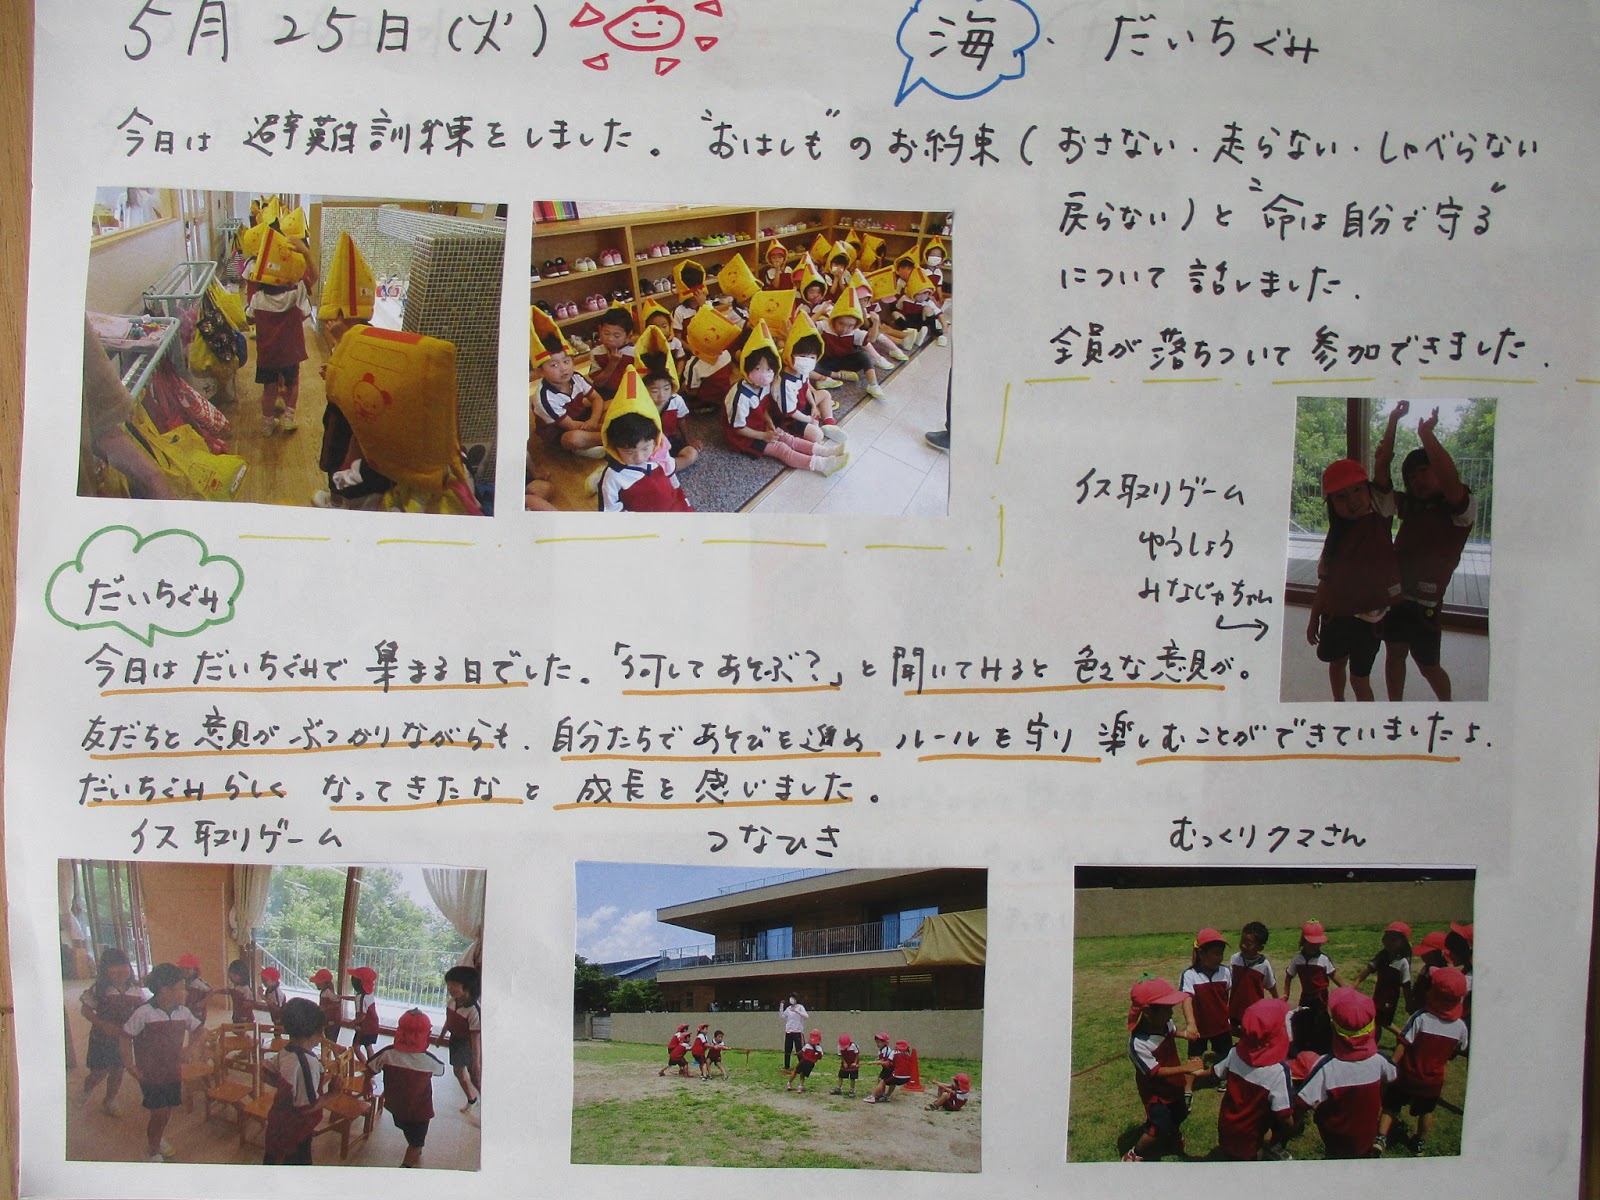 5月25日(火)
海・だいちぐみ
今日は避難訓練をしました。"おはしも"のお約束(おさない・走らない・しゃべらない
戻らない)と"命は自分で守る"
について話しました.
全員が落ちついて参加できました.
イス取りゲーム
ゆうしょう
みなじゅちゃん
だいちぐみ
今日はだいちぐみで集まる日でした。「何してあそぶ?」と聞いてみると色々な意見が。
友だちと意見がぶつかりながらも、自分たちであそびを進めルールを守り楽しむことができていましたよ.
だいちぐみらしくなってきたなと成長を感じました。
イス取りゲーム
つなひき
むっくりクマさん